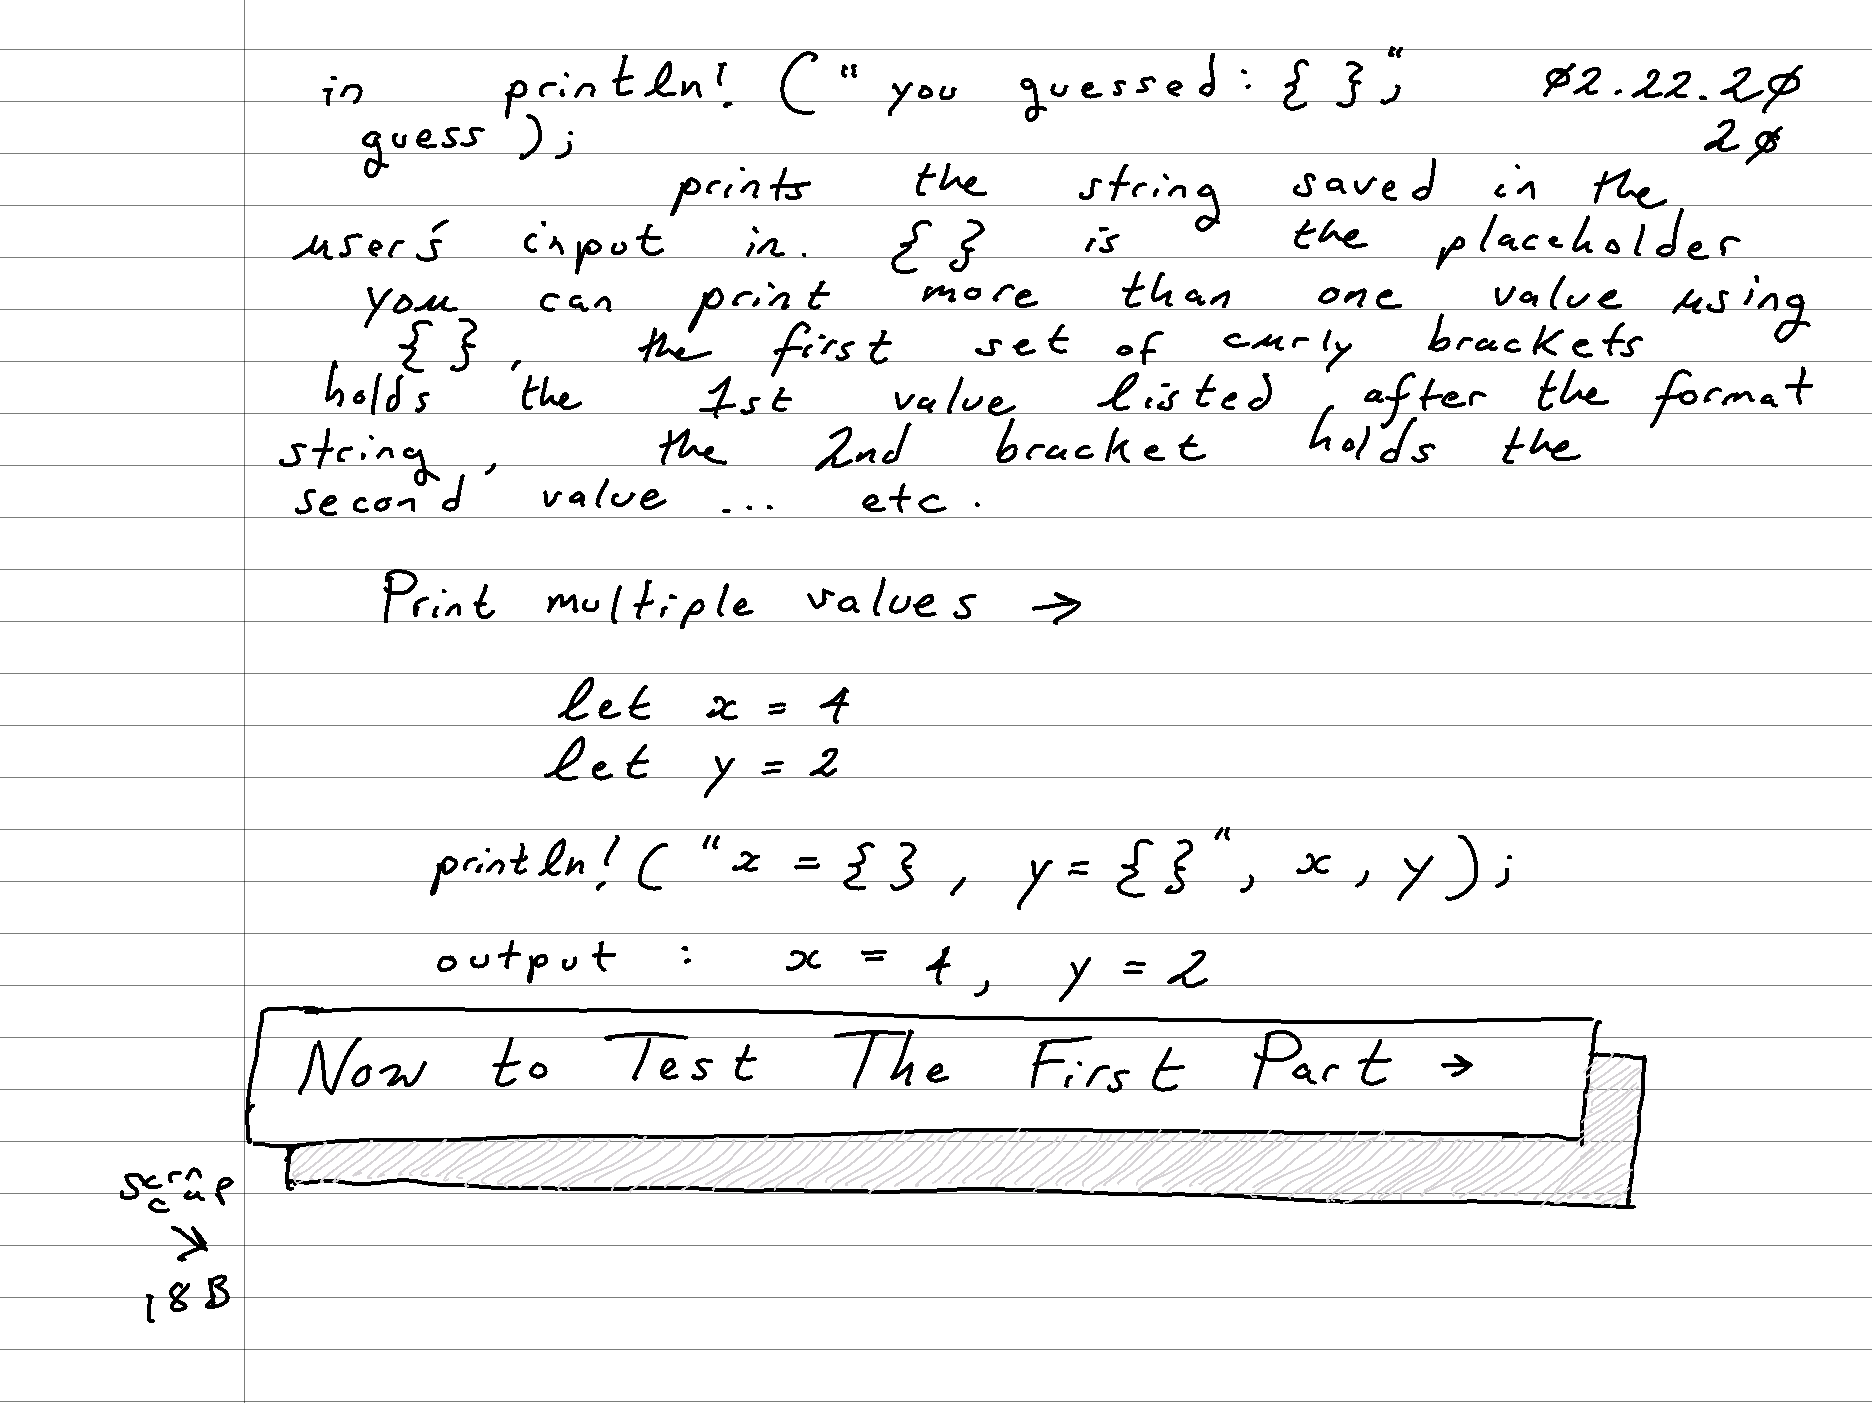 in println! ("you guessed: { }", 02.22.20
guess ); 20
prints the string saved in the
user's input in. { } is the placeholder
you can print more than one value using
{ }, the first set of curly brackets
holds the 1st value listed after the format
string, the 2nd bracket holds the
second value ... etc.
Print multiple values →
let x = 4
let y = 2
println! ("x = {}, y = {}", x, y);
output : x = 4, y = 2
Now to Test The First Part →
↘
18B